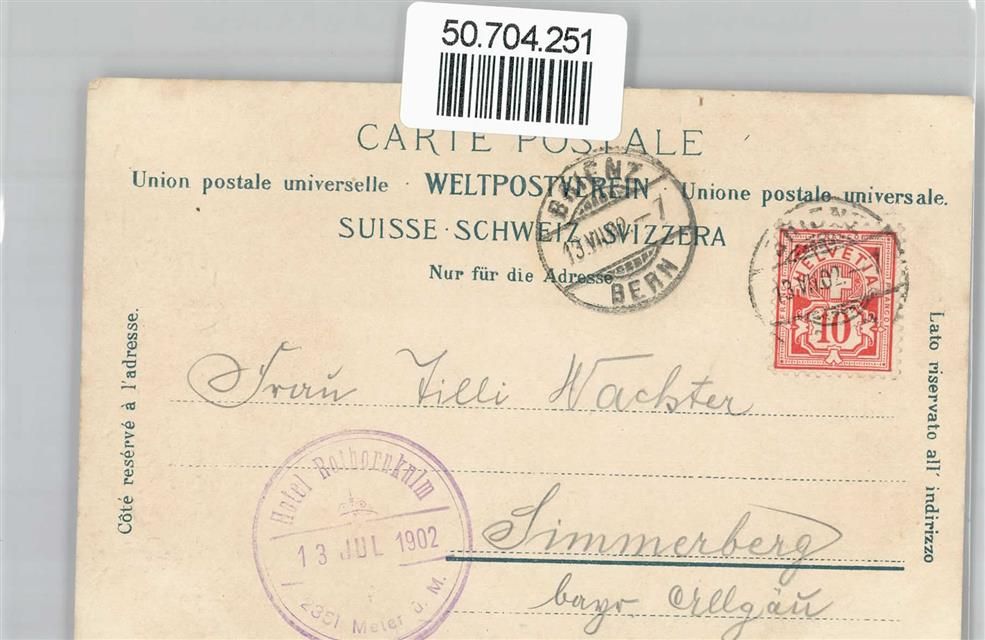 50.704.251
CARTE POSTALE
Union postale universelle · WELTPOSTVEREIN · Unione postale universale.
SUISSE · SCHWEIZ · SVIZZERA
Nur für die Adresse
BRIENZ
13.VII.02 – 7
BERN
13.VII.02
HELVETIA
FRANCO
10
Côté resérvé à l'adresse.
Lato riservato all' indirizzo
Frau Tilli Wachter
Simmerberg
bayr. Allgäu
Hotel Rothornkulm
13 JUL 1902
2351 Meter ü. M.